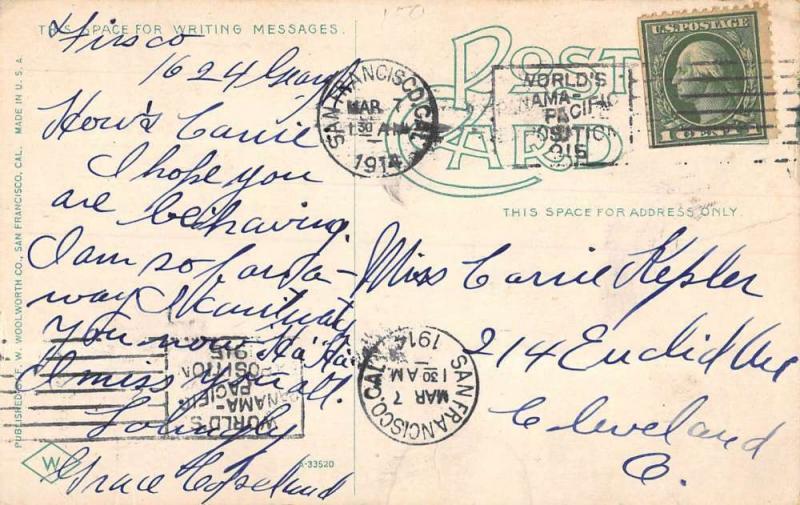 THIS SPACE FOR WRITING MESSAGES.
Frisco
1624 Geary
How's Carrie
I hope you
are behaving.
I am so far a-
way I can't watch
you now Ha Ha
I miss you all.
Lovingly
Grace Copeland
PUBLISHED BY F. W. WOOLWORTH CO., SAN FRANCISCO, CAL. MADE IN U.S.A.
W
A-33520
POST CARD
SAN FRANCISCO, CAL.
MAR 7
1 30 AM
1914
WORLD'S
PANAMA-
PACIFIC
EXPOSITION
1915
U.S. POSTAGE
1 CENT 1
THIS SPACE FOR ADDRESS ONLY.
Miss Carrie Kepler
214 Euclid Ave
Cleveland
O.
SAN FRANCISCO, CAL.
MAR 7
1 30 AM
1914
WORLD'S
PANAMA-
PACIFIC
EXPOSITION
1915